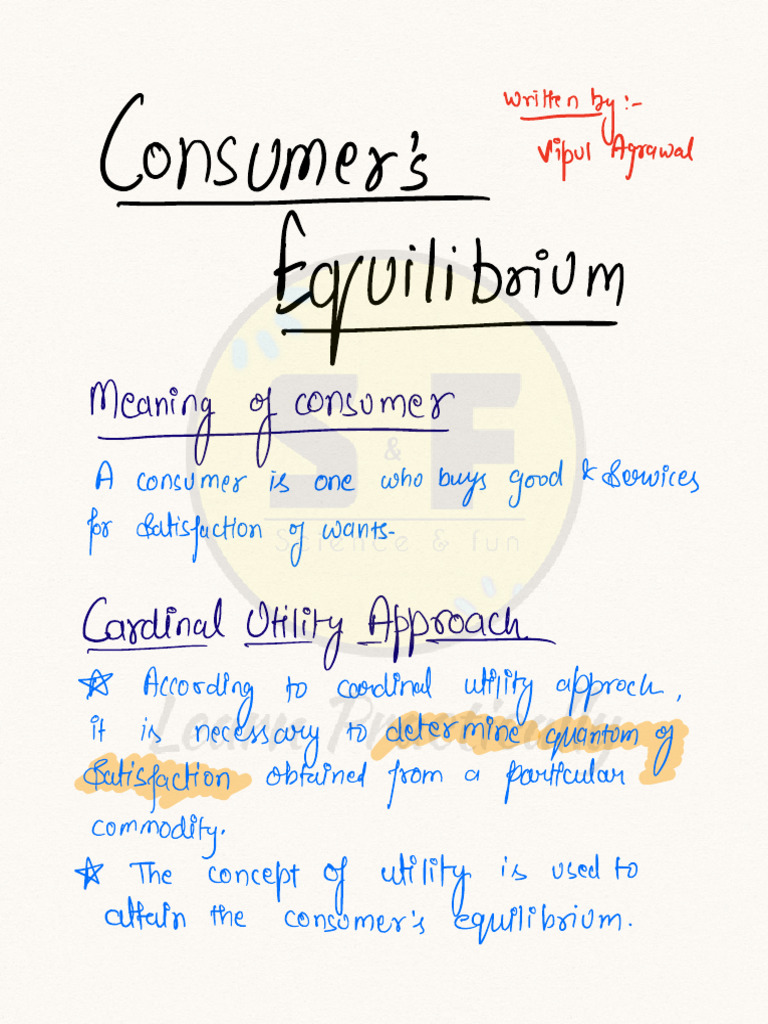 Written by :-
Vipul Agrawal
Consumer's
Equilibrium
Meaning of consumer
A consumer is one who buys good & Services
for Satisfaction of wants-
Cardinal Utility Approach
☆ According to cardinal utility approch,
it is necessary to determine quantum of
Satisfaction obtained from a particular
commodity.
☆ The concept of utility is used to
attain the consumer's equilibrium.
S & F
Science & fun
Learn Practically